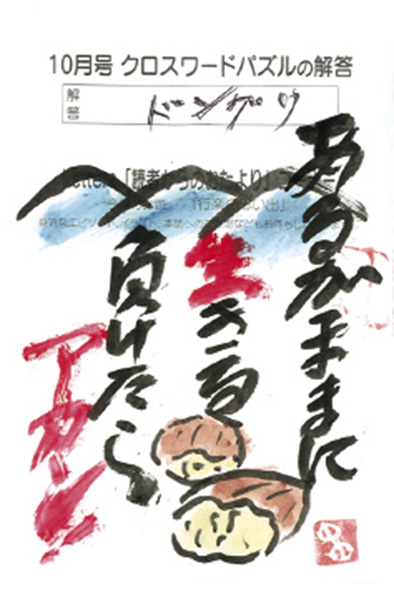 10月号 クロスワードパズルの解答
解答
ドングリ
「読者からのおたより」
あるがままに
生きる
負けたら
アカン!